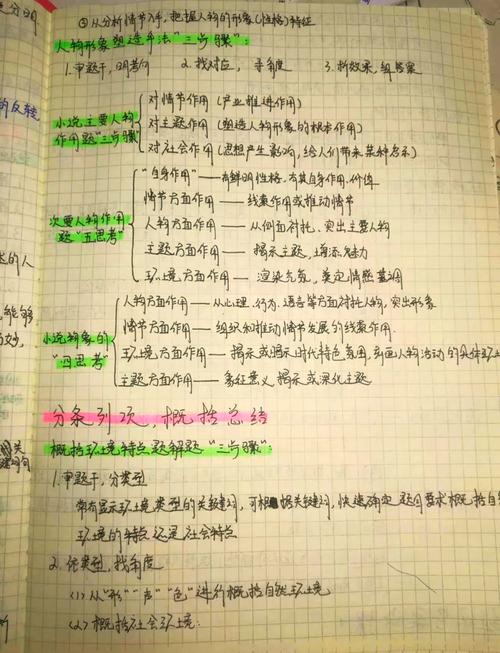 ⑤从分析情节入手,把握人物的形象(性格)特征
人物形象塑造手法"三步骤":
1.审题干,明考向 2.找对应,寻角度 3.析效果,组答案
小说主要人物作用题"三步骤"
对情节作用(产业推进作用)
对主题作用(塑造人物形象的根本作用)
对社会作用(思想产生影响,给人们带来某种启示)
次要人物作用题"五思考"
"自身作用"——有鲜明性格,有其自身作用、价值
情节方面作用——线索作用或推动情节
人物方面作用——从侧面衬托、突出主要人物
主题方面作用——揭示主题,增添魅力
环境方面作用——渲染气氛,奠定情感基调
小说物象的"四思考"
人物方面作用——从心理、行为、语言等方面衬托人物,突出形象
情节方面作用——组织和推动情节发展的线索作用
环境方面作用——揭示或暗示时代特色氛围,刻画人物活动的具体环
主题方面作用——象征意义,揭示或深化主题
分条列项,概括总结
概括环境特点题解题"三步骤":
1.审题干,分类型
常有显示环境类型的关键词,可根据关键词,快速确定题目要求概括自
环境的特点还是社会特点
2.依类型,找角度
(1)从"形""声""色"进行概括自然环境
(2)概括社会环境: